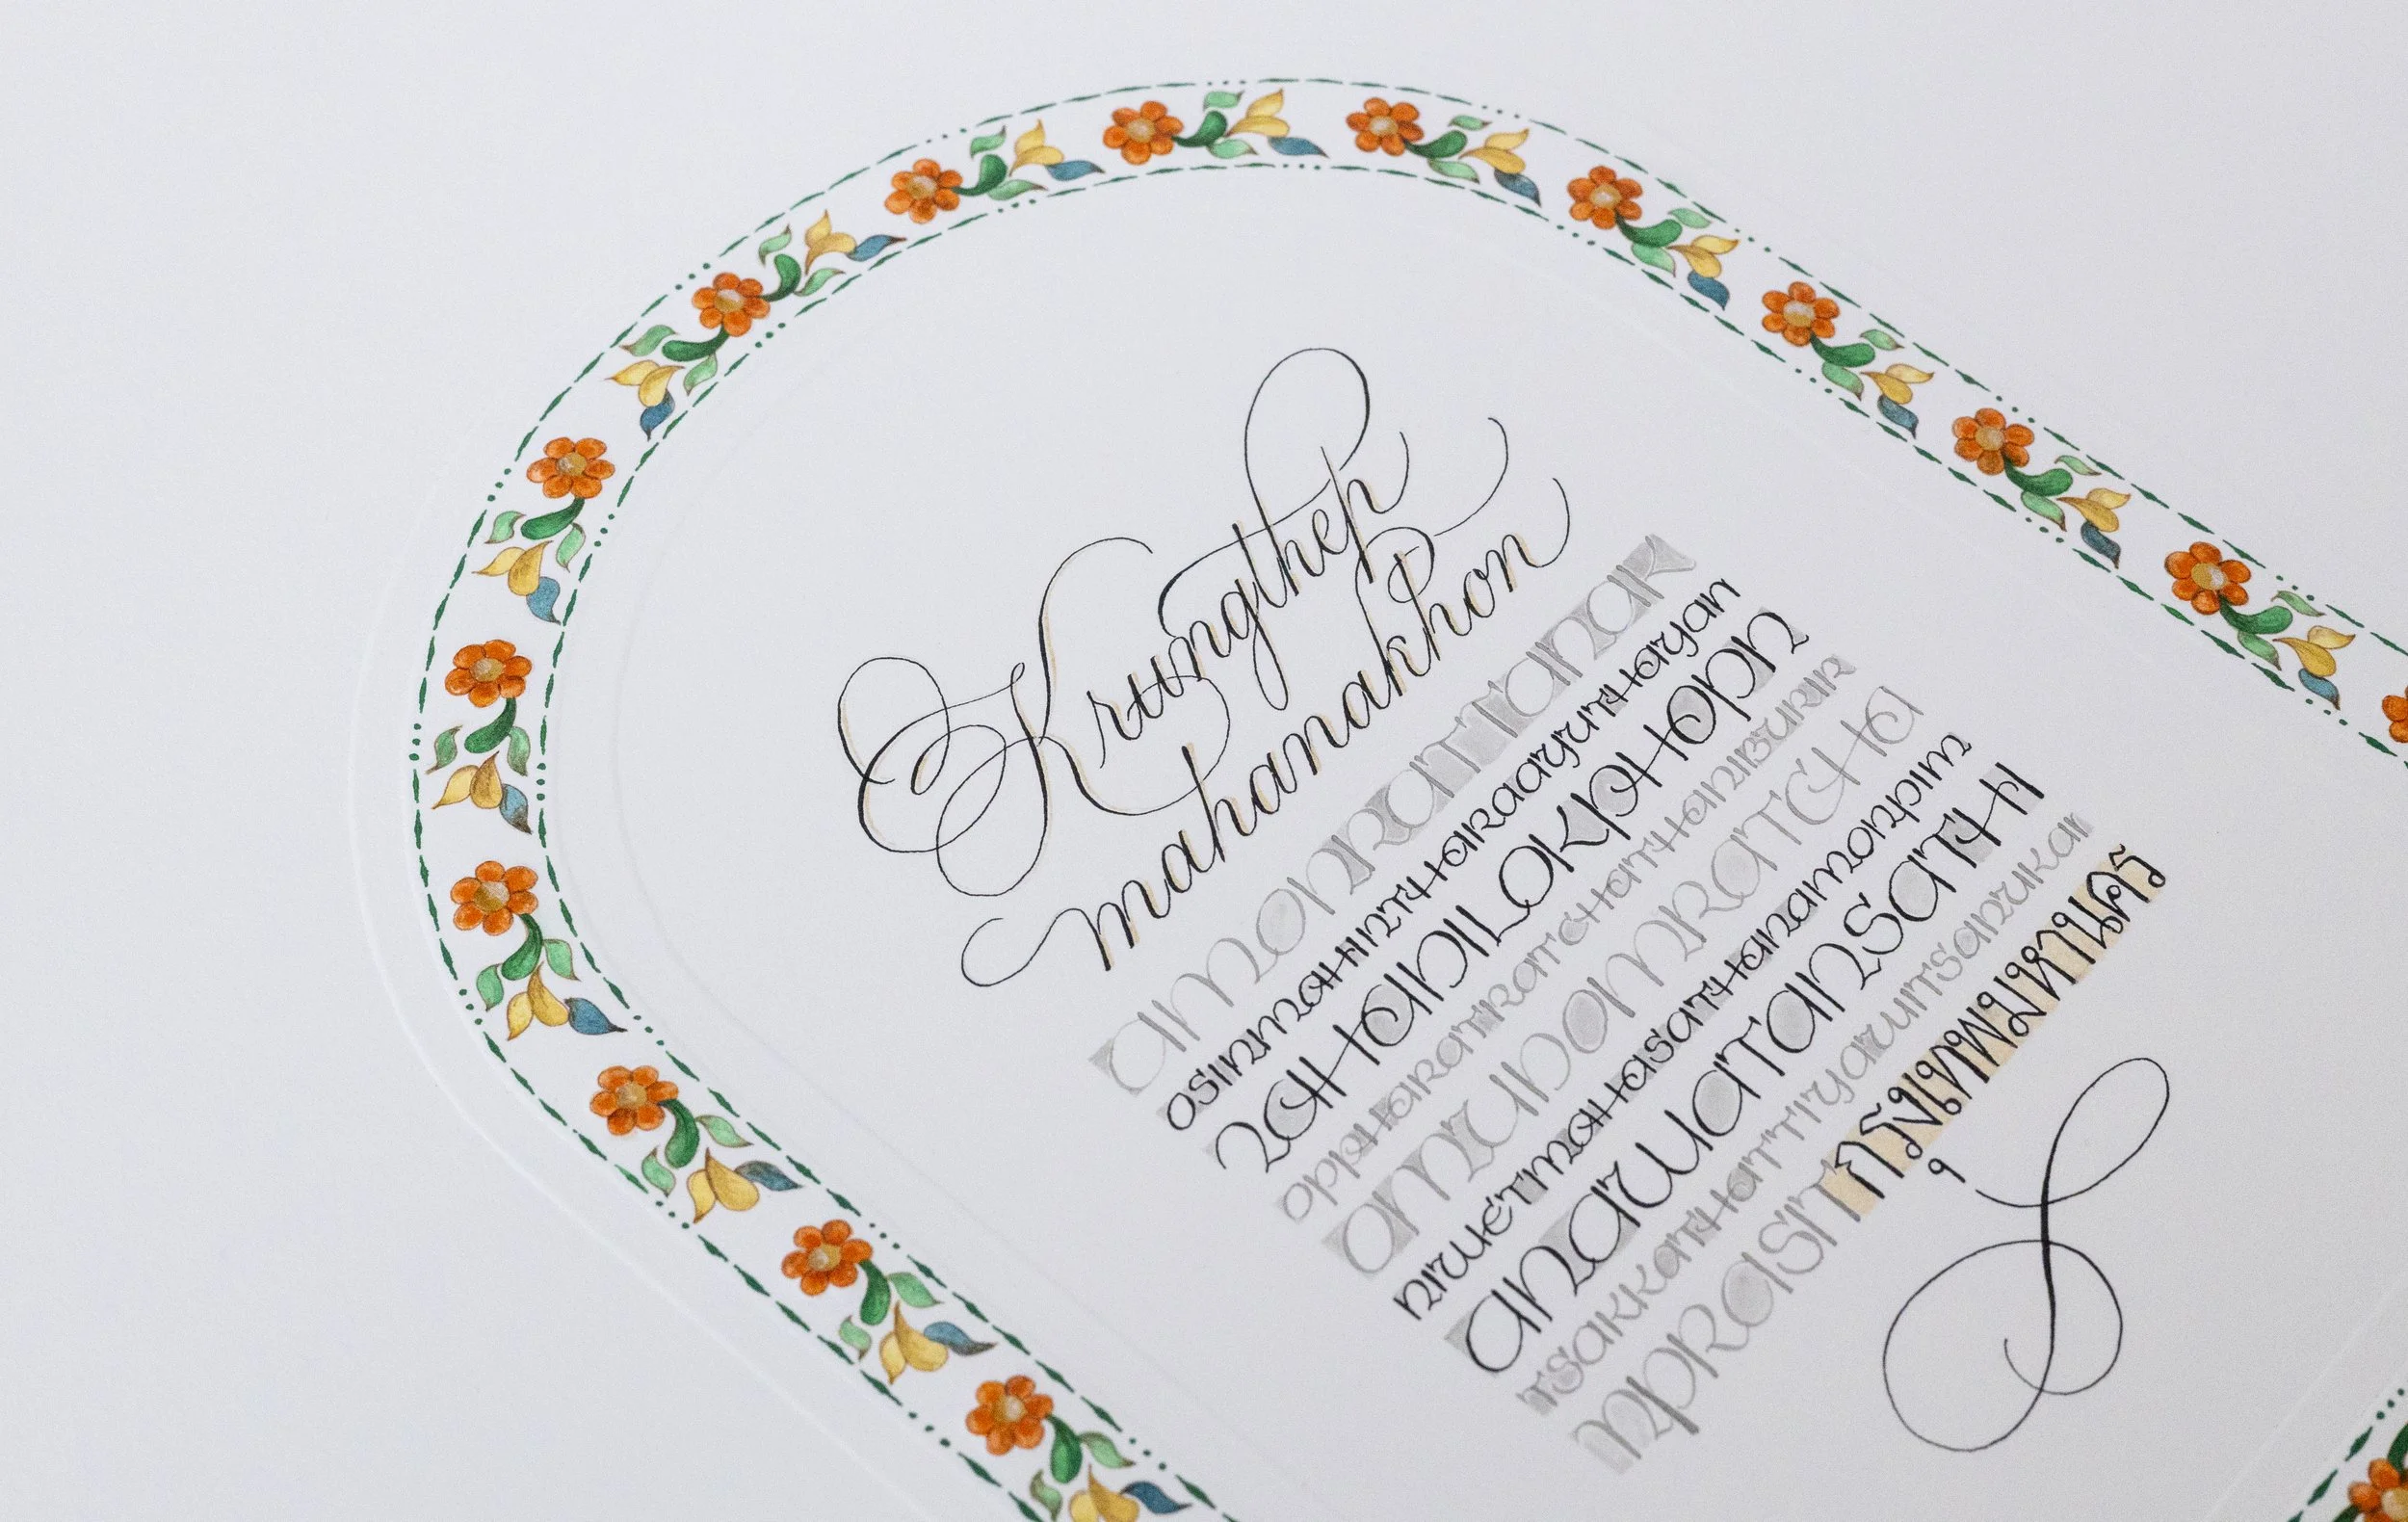 Krungthep
mahanakhon
amonrattanak
osinmahintharaayuthayam
ahadilokphopn
oppharatratchathaniburir
omudomratcha
niwetmahasathanamonpim
anawatansathi
tsakkathattiyawitsanuka
mprasit กรุงเทพมหานคร